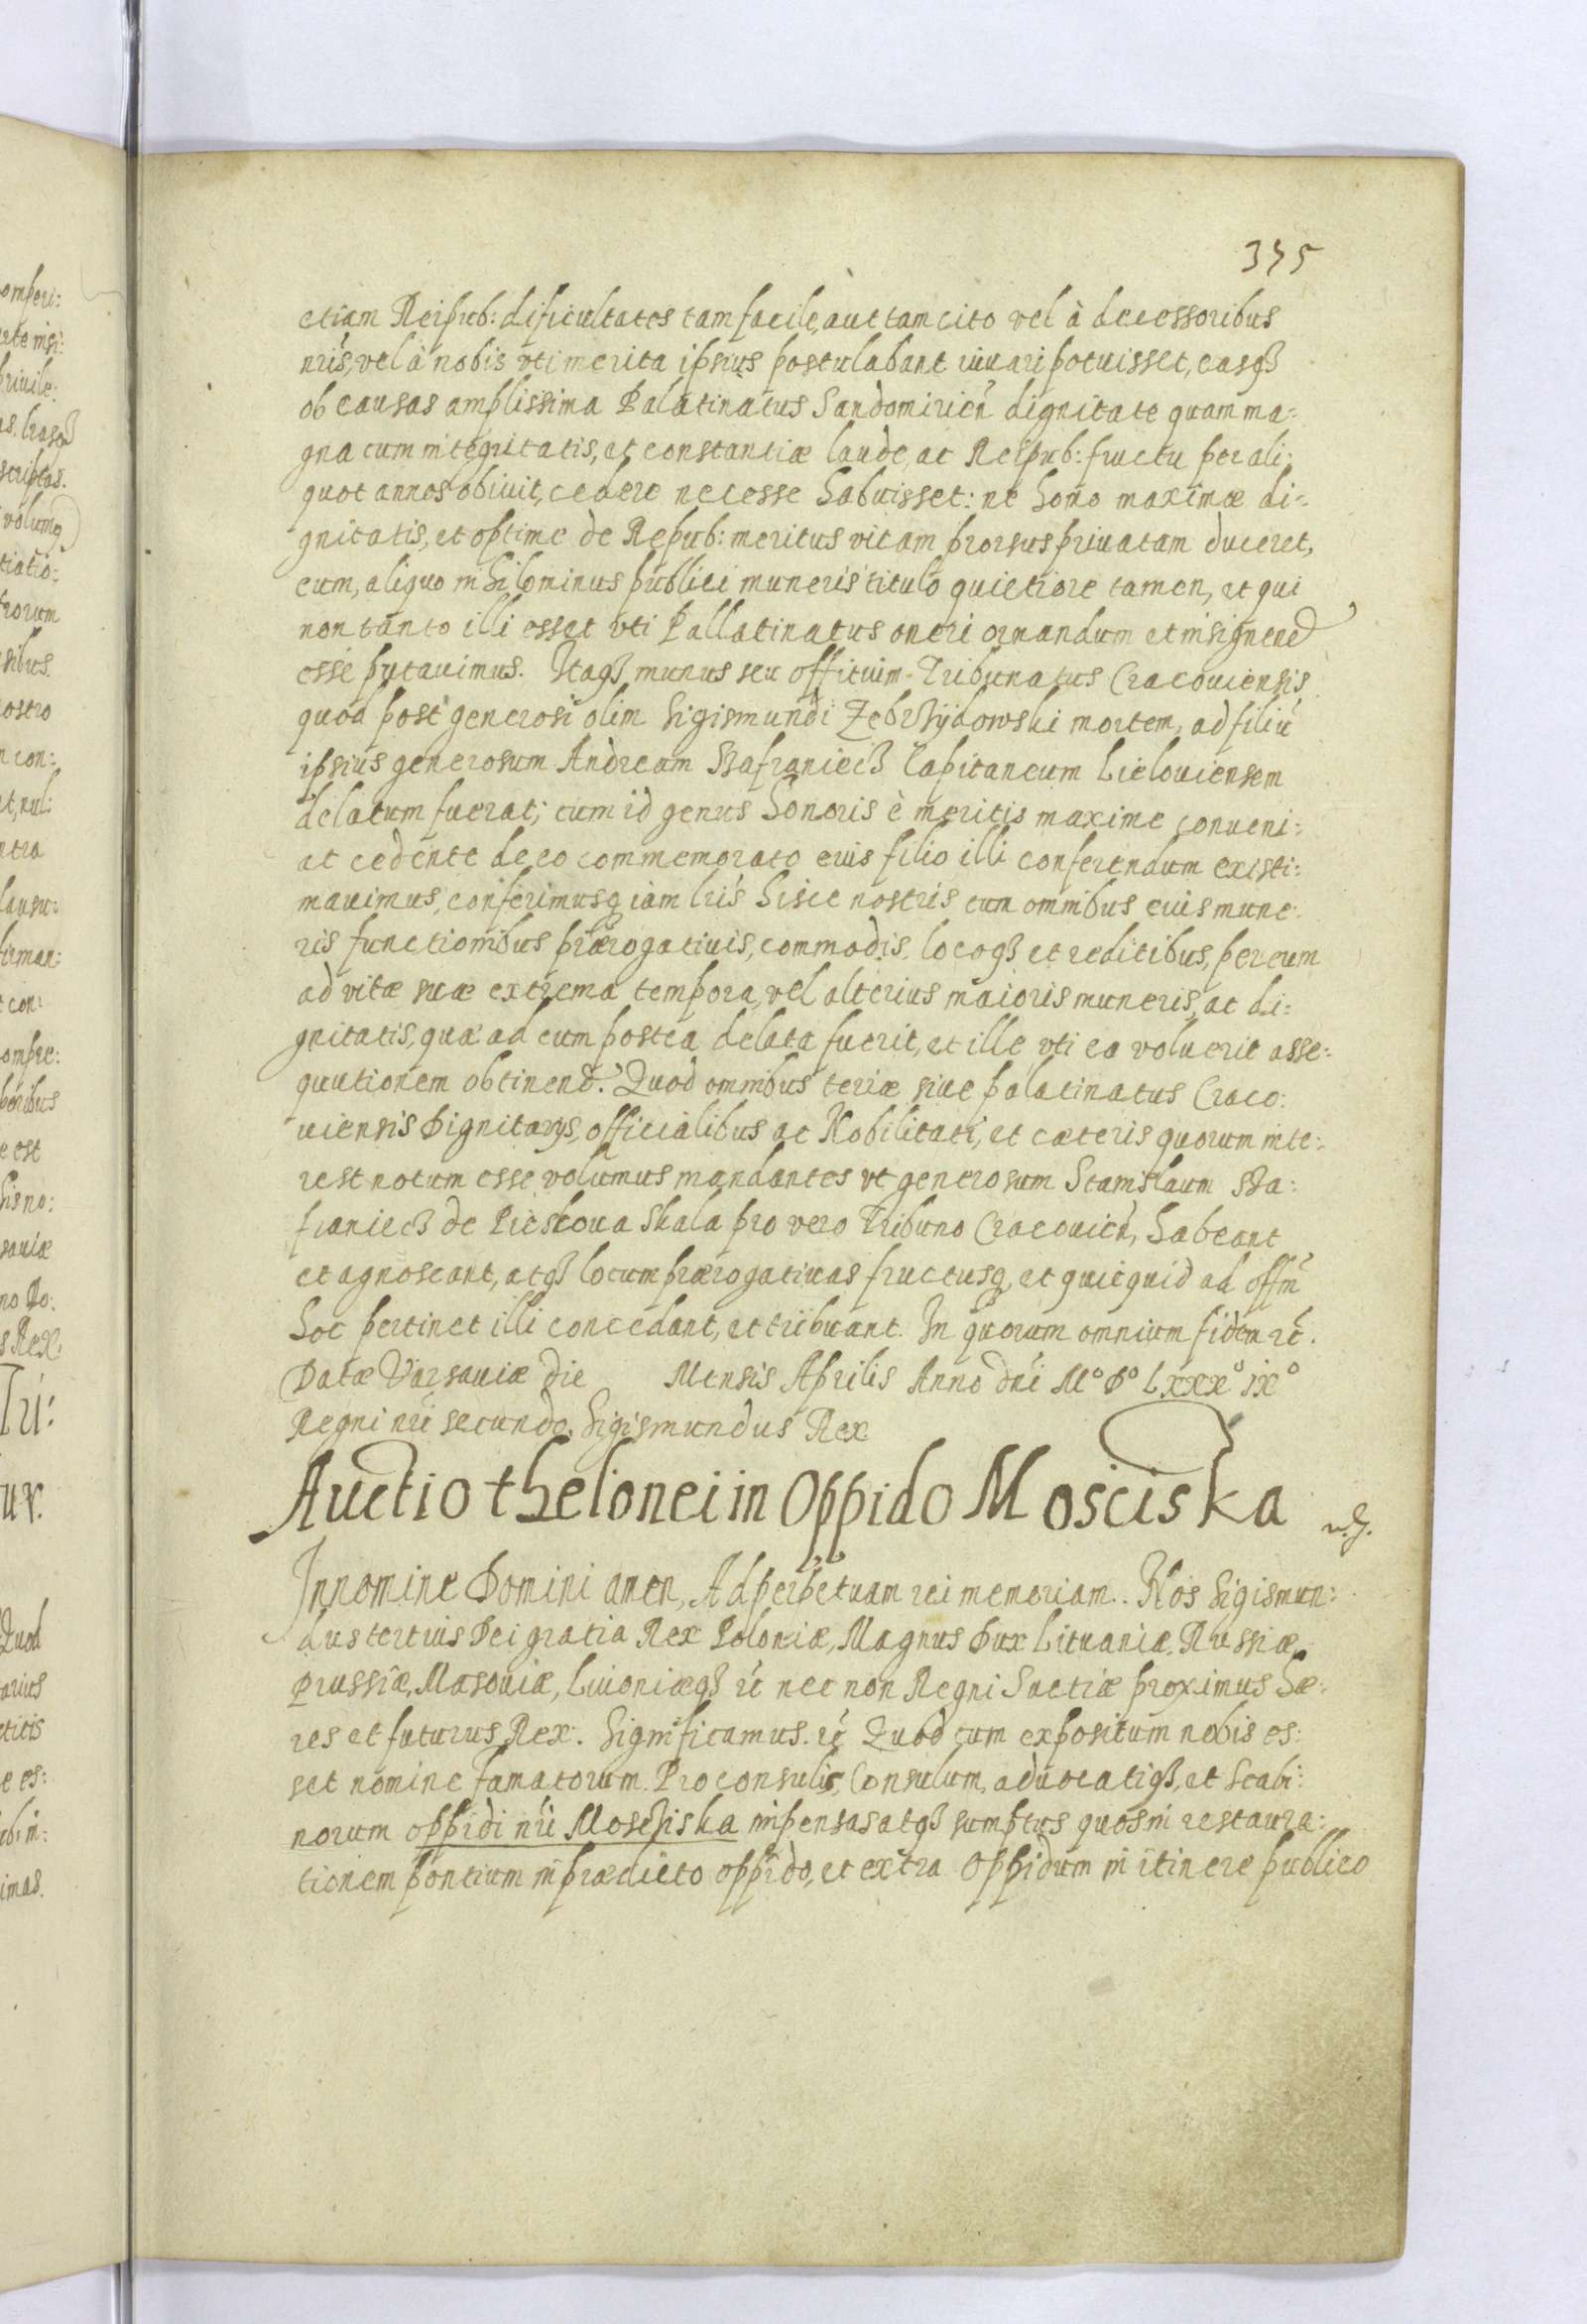 335
etiam Reipub: dificultates tam facile, aut tam cito vel à decessoribus
nris, vel à nobis vti merita ipsius postulabant iuuari potuisset, easq3
ob causas amplissima Palatinatus Sandomirien dignitate quam ma:
gna cum integritatis, et constantiæ laude, ac Reipub: fructu per ali:
quot annos obiuit, cedere necesse habuisset: ne homo maximæ di:
gnitatis, et optime de Repub: meritus vitam prorsus priuatam duceret,
eum, aliquo nihilominus publici muneris titulo quietiore tamen, et qui
non tanto illi esset vti Pallatinatus oneri ornandum et insignend
esse putauimus. Itaq3 munus seu officium Tribunatus Cracouiensis
quod post generosi olim Sigismundi Zebrzÿdowski mortem, ad filiu
ipsius generosum Andream Szafraniecz Capitaneum Lieloviensem
delatum fuerat; cum id genus honoris è meritis maxime conueni:
at cedente de eo commemorato eius filio illi conferendum existi:
mauimus, conferimusq iam lris hisce nostris cum omnibus euis mune:
ris functionibus prærogatiuis, commodis, locoq3 et reditibus, per eum
ad vitæ suæ extrema tempora, vel alterius maioris muneris, ac di:
gnitatis, quæ ad eum postea delata fuerit, et ille vti ea voluerit asse:
quutionem obtinend. Quod omnibus terræ siue palatinatus Craco:
uiensis Dignitarys, officialibus ac Nobilitati, et cæteris quorum inte:
rest notum esse volumus mandantes vt generosum Stanislaum Sza:
franiecz de Pieskoua Skala pro vero Tribuno Cracouien, habeant
et agnoscant, atq3 locum prærogatiuas fructusq, et quicquid ad offm
hoc pertinet illi concedant, et tribuant. In quorum omnium fidem rc.
Datæ Varsauiæ die Mensis Aprilis Anno dni Mº Dº Lxxxº ixº
Regni nri secundo. Sigismundus Rex
Auctio thelonei in Oppido Mosciska
In nomine Domini amen, Ad perpetuam rei memoriam. Nos Sigismun:
dus tertius Dei gratia Rex Poloniæ, Magnus Dux Lituaniæ, Russiæ
Prussiæ, Masouiæ, Liuoniæq3 rc nec non Regni Suetiæ proximus hæ:
res et futurus Rex. Significamus. rc Quod cum expositum nobis es:
set nomine famatorum Proconsulis, Consulum, aduocatiq3, et Scabi:
norum oppidi nri Mosciska impensas atq3 sumptus quos in restaura:
tionem pontium in prædicto oppido, et extra oppidum in itinere publico